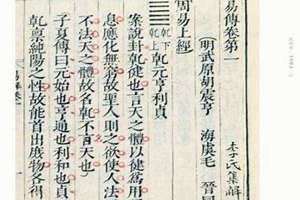 易傳卷第一 李氏集解
(明武原胡震亨 海虞毛 晉
周易上經
乾下乾上 乾元亨利貞
案說卦乾健也言天之體以健爲用
息應化無窮故聖人則之欲使人法
不法天之體故名乾不言天也
子夏傳曰元始也亨通也利和也貞
乾禀純陽之性故能首出庶物各得